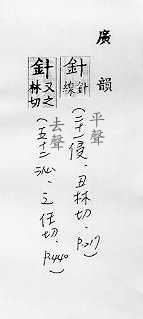 廣韻
針 針線 (二十一侵.丑林切.P.217)
平聲
針 又之林切 (五十二沁.之任切.P.440)
去聲